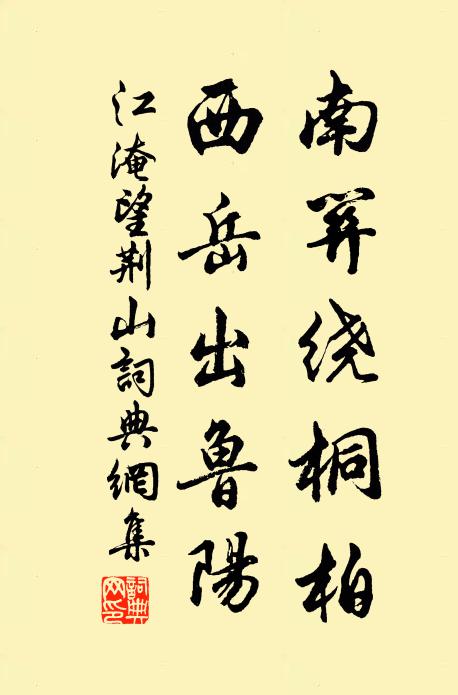 南关绕桐柏
西岳出鲁陽
江淹望荆山詞典網集
詞典网印